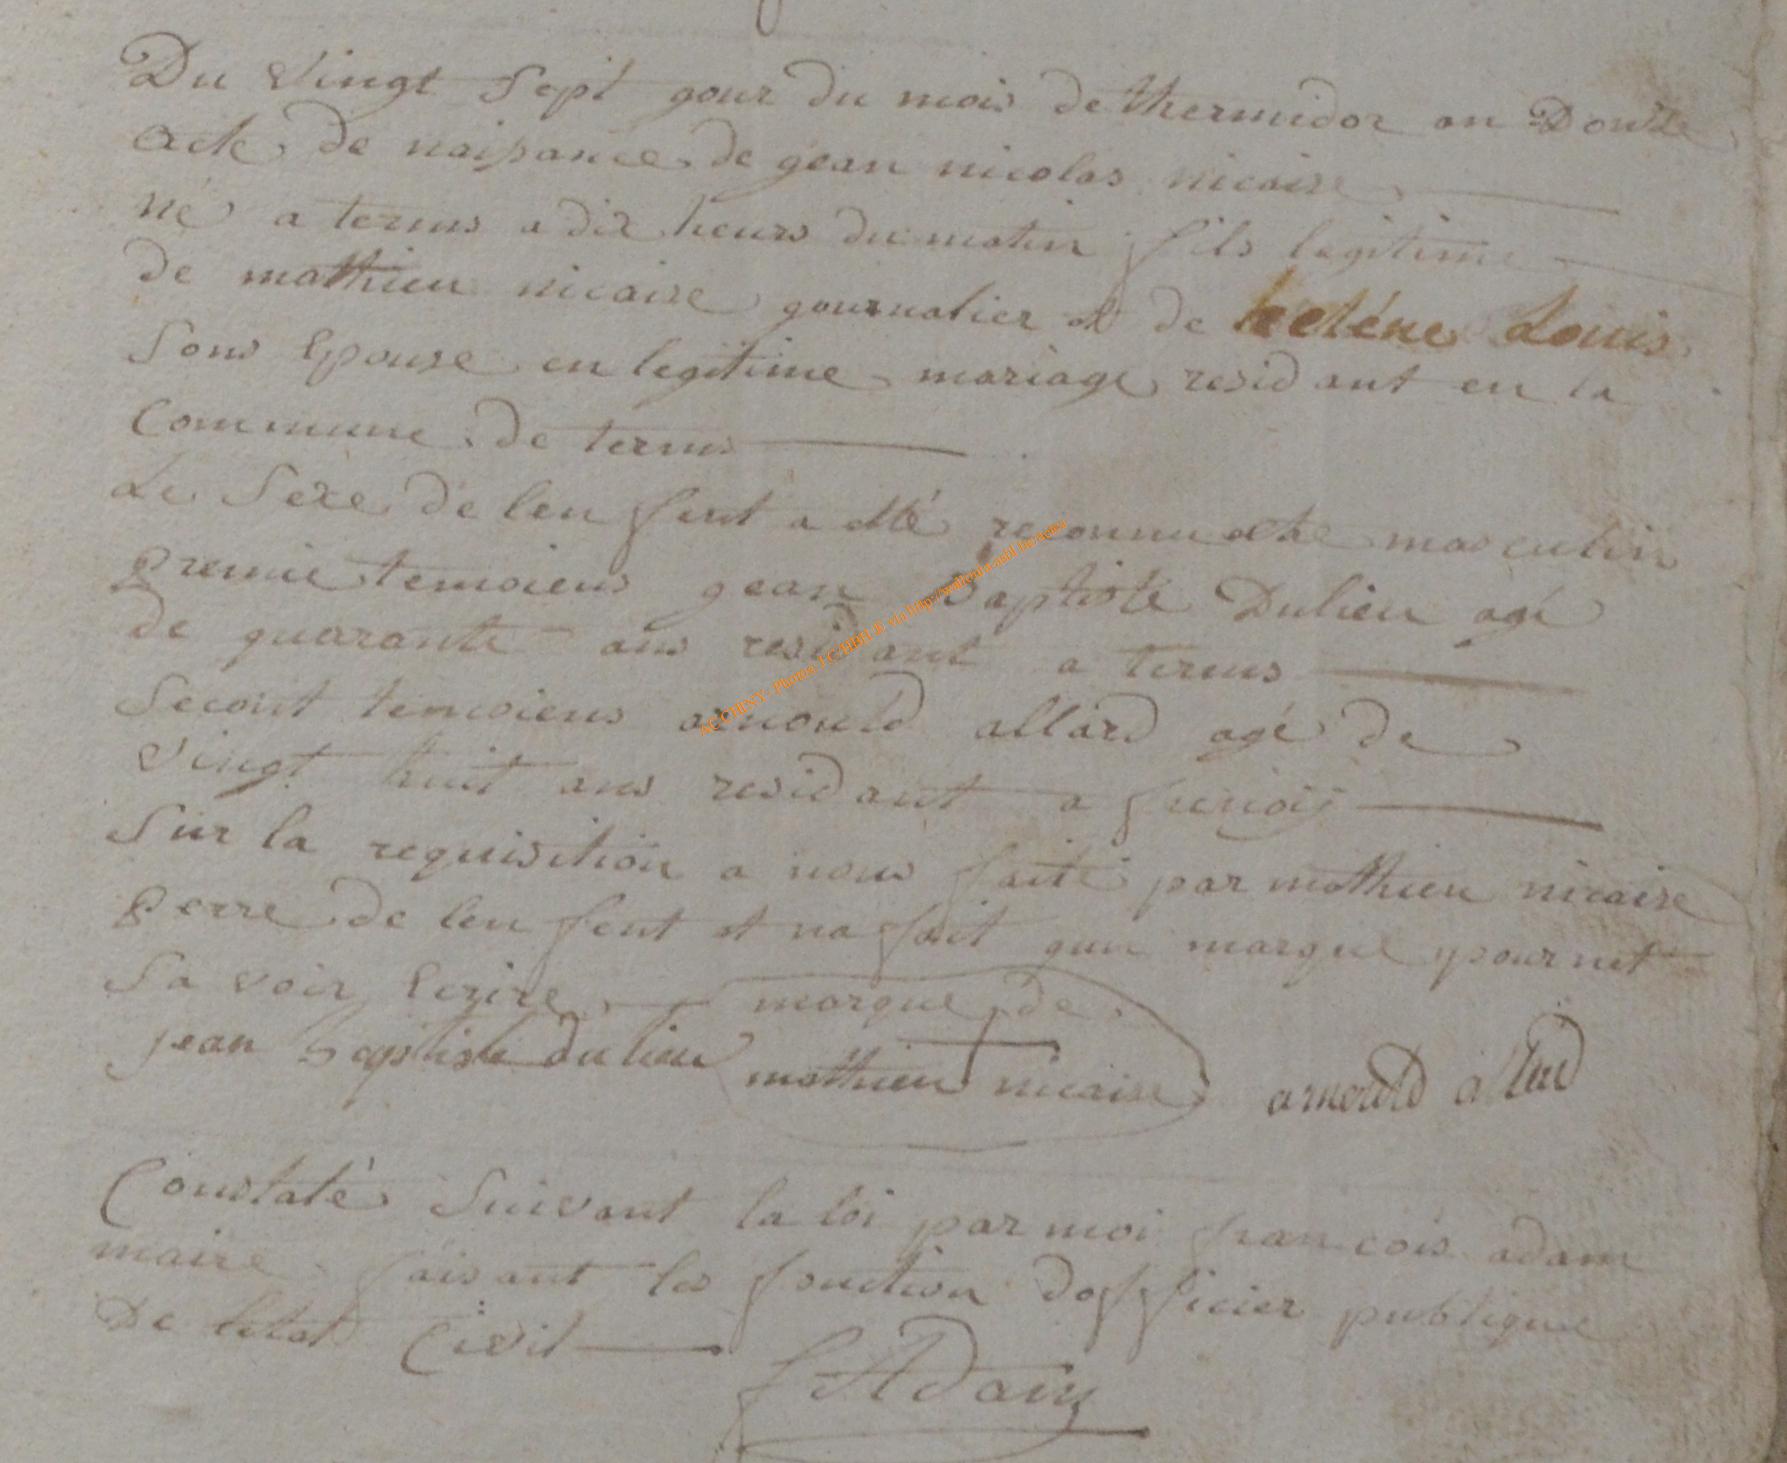 Du vingt sept gour du mois de thermidor an Douze
acte de naisance de gean nicolas nicaise
né a termes a dix heurs du matin fils legitime
de mathieu nicaise gournalier et de heléne Louis
Sons Epouse en legitime mariage residant en la
Commune de termes
Le Sexe de len fent a etté reconnu etre masculin
premie temoiens gean Baptiste Dulieu agé
de quarante ans residant a termes
Secont temoiens arnould allard agé de
vingt huit ans residant a frenois
Sur la requisition a nous faite par mathieu nicaise
perre de len fent et na fait qun marque pour net
Sa voir Ecrire marque de
jean baptiste dulieu mathieu nicaise arnould allard
Constaté Suivant la loi par moi francois adam
maire faisant les fonction dofficier publique
De letat Civil
f Adam